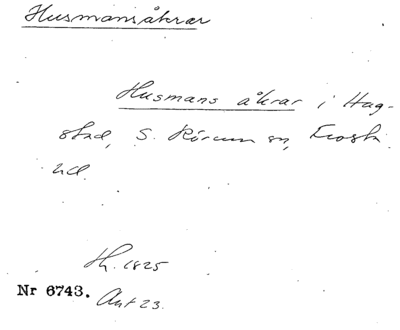 Husmansåkrar
Husmans åkrar i Hag-
stad, S. Rörum sn, Frosta
hd.
Sk. 1825
Nr 6743. Akt 23.